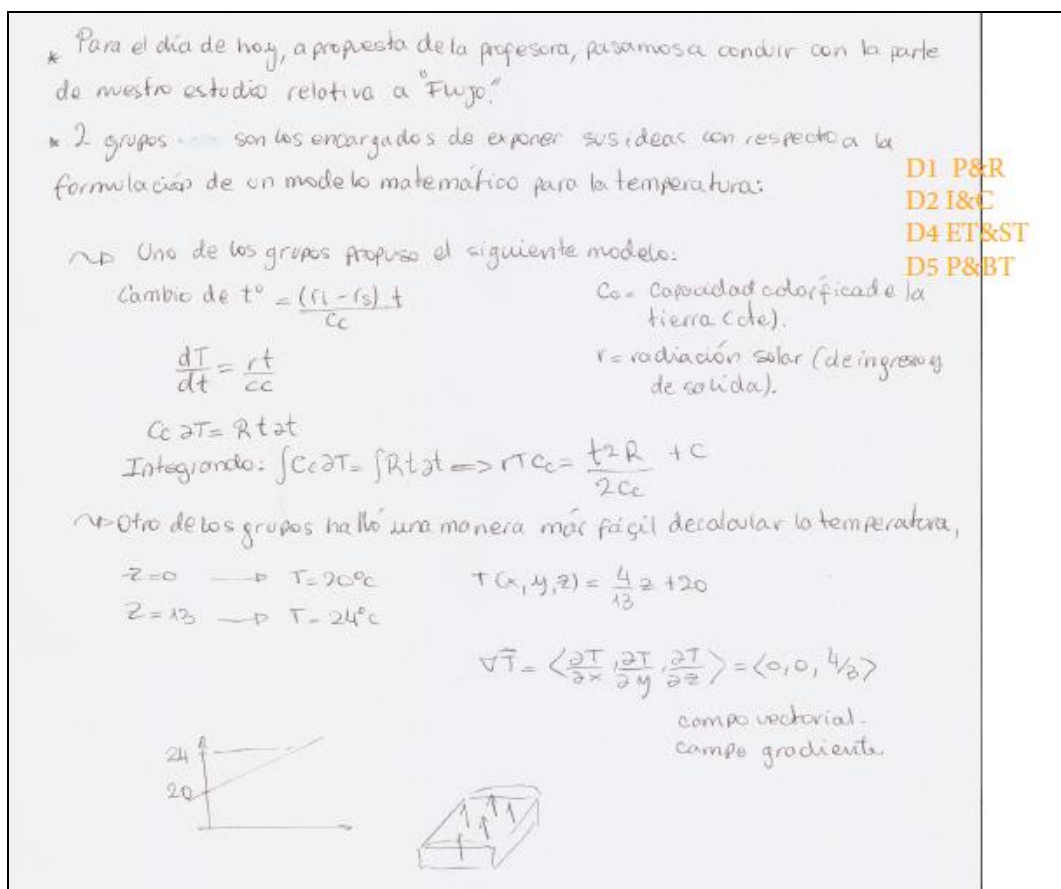 * Para el día de hoy, a propuesta de la profesora, pasamos a concluir con la parte
de nuestro estudio relativa a "Flujo."
* 2 grupos son los encargados de exponer sus ideas con respecto a la
formulación de un modelo matemático para la temperatura:
D1 P&R
D2 I&C
D4 ET&ST
D5 P&BT
Uno de los grupos propuso el siguiente modelo:
Cambio de t° = (ri - rs) t / Cc
Cc = Capacidad calorífica de la
tierra (cte).
dT/dt = rt/cc
r = radiación solar (de ingreso y
de salida).
Cc ∂T = R t ∂t
Integrando: ∫Cc∂T = ∫Rt∂t => rT Cc = t2 R / 2Cc + C
Otro de los grupos halló una manera más fácil de calcular la temperatura,
z=0 → T=20°c
T(x,y,z) = 4/13 z + 20
z=13 → T=24°c
∇T = <∂T/∂x, ∂T/∂y, ∂T/∂z> = <0, 0, 4/3>
campo vectorial.
campo gradiente.
24
20